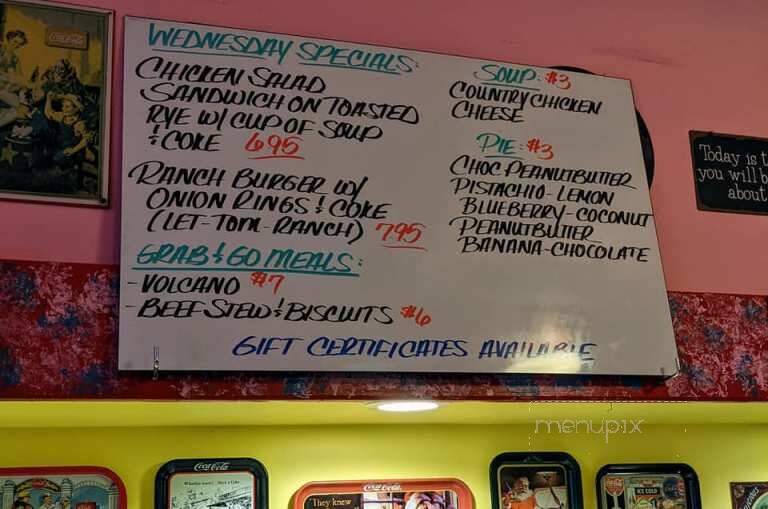 WEDNESDAY SPECIALS:
CHICKEN SALAD
SANDWICH ON TOASTED
RYE W/ CUP OF SOUP
& COKE 6.95
RANCH BURGER W/
ONION RINGS & COKE
(LET-TOM-RANCH) 7.95
GRAB & GO MEALS:
- VOLCANO $7
- BEEF STEW & BISCUITS $6
SOUP: $3
COUNTRY CHICKEN
CHEESE
PIE: $3
CHOC PEANUTBUTTER
PISTACHIO - LEMON
BLUEBERRY - COCONUT
PEANUTBUTTER
BANANA - CHOCOLATE
GIFT CERTIFICATES AVAILABLE
Today is t
you will b
about
menupix
Coca-Cola
Coca-Cola
Coca-Cola
They knew
ICE COLD